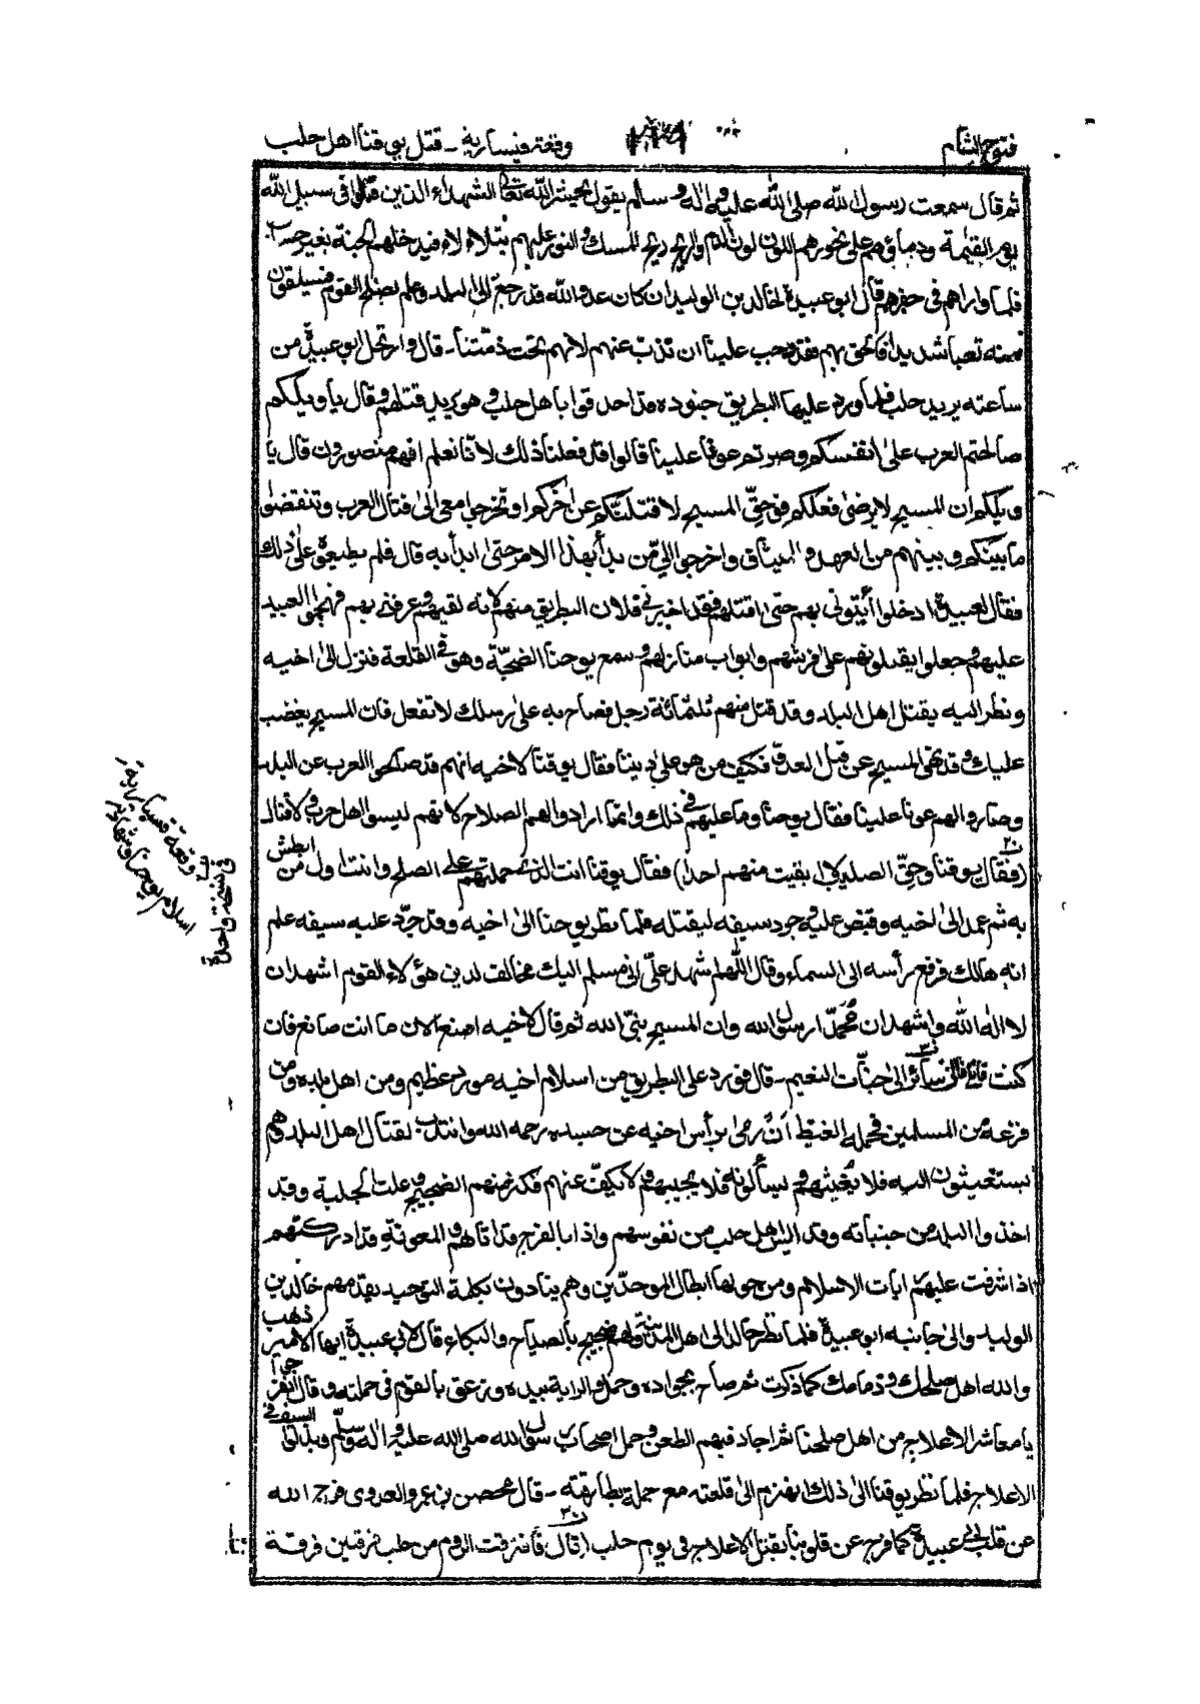 فتوح الشام
وقعة قيسارية - قتل يوقنا اهل حلب
ثم قال سمعت رسول الله صلى الله عليه واله وسلم يقول يحشر الله تعالى الشهداء الذين قتلوا فى سبيل الله
يوم القيمة ودماؤهم على نحورهم اللون لون الدم والريح ريح المسك والنور عليهم يتلاءلاء فيدخلهم الجنة بغير حساب
فلما واراهم فى حفرهم قال ابو عبيدة لخالد بن الوليد ان كان عدو الله قد رجع الى البلد وعلم بصلح القوم فسيلقون
منه تعبا شديدا فالحق بهم فقد وجب علينا ان نذب عنهم لانهم تحت ذمتنا - قال وارتحل ابو عبيدة من
ساعته يريد حلب فلما ورد عليها البطريق جنوده قد احدقوا باهل حلب وهو يريد قتلهم وقال يا ويلكم
صالحتم العرب على انفسكم وصرتم عونا علينا قالوا قد فعلنا ذلك لاننا نعلم انهم منصورون قال يا
ويلكم ان المسيح لا يرضى فعلكم فوحق المسيح لاقتلنكم عن اخركم او تخرجوا معى الى قتال العرب وتنقضوا
ما بينكم وبينهم من العهد والميثاق واخرجوا الى من بدأ بهذا الامر حتى ابدأ به قال فلم يطيعوه على ذلك
فقال لعبيده ادخلوا أيتونى بهم حتى اقتلهم فقد اخبرنى فلان البطريق منهم لانه لقيهم وعرفنى بهم فهجموا العبيد
عليهم وجعلوا يقتلونهم على فرشهم وابواب منازلهم وسمع يوحنا الضجة وهو فى القلعة فنزل الى اخيه
ونظر اليه يقتل اهل البلد وقد قتل منهم ثلثمائة رجل فصاح به على رسلك لا تفعل فان المسيح يغضب
عليك وقد نهى المسيح عن قتل العدو فكيف من هو على ديننا فقال يوقنا لاخيه انهم قد صالحوا العرب عن البلد
وصاروا لهم عونا علينا فقال يوحنا وما عليهم فى ذلك وانما ارادوا لهم الصلاح لانهم ليسوا اهل حرب ولا قتال
(فقال يوقنا وحق الصليب لا ابقيت منهم احدا) فقال يوقنا انت الذى حملتهم على الصلح وانت اول من ابطش
به ثم عمد الى اخيه وقبض عليه وجرد سيفه ليقتله فلما نظر يوحنا الى اخيه وقد جرد عليه سيفه علم
انه هالك فرفع رأسه الى السماء وقال اللهم اشهد على انى مسلم اليك مخالف لدين هؤلاء القوم اشهد ان
لا اله الا الله واشهد ان محمدا رسول الله وان المسيح نبى الله ثم قال لاخيه اصنع الان ما انت صانع فان
كنت قاتلى فانى سائر الى جنات النعيم - قال فورد على البطريق من اسلام اخيه مورد عظيم ومن اهل بلده ومن
فزعه من المسلمين فحمله الغيظ ان رمى برأس اخيه عن جسده رحمه الله وانتدب لقتال اهل البلد وهم
يستغيثون اليه فلا يغيثهم ويسألونه فلا يجيبهم ولا يكف عنهم فكثر منهم الضجيج وعلت الجلبة وقد
اخذوا البلد من جنباته وقد ايس اهل حلب من نفوسهم واذا بالفرج قد اتاهم والمعونة قد ادركتهم
اذ اشرفت عليهم رايات الاسلام ومن حولها ابطال الموحدين وهم ينادون بكلمة التوحيد يقدمهم خالد بن
الوليد والى جانبه ابو عبيدة فلما نظر خالد الى اهل المدينة ولهم ضجيج بالصياح والبكاء قال لابى عبيدة ايها الامير ذهب
والله اهل صلحك وذمامك كما ذكرت ثم صاح بجواده وحمل والراية بيده وزعق بالقوم فى حملته وقال انفرجوا
يا معاشر الاعلاج من اهل صلحنا ثم اجاد فيهم الطعن وحمل اصحاب رسول الله صلى الله عليه واله وسلم وبذلوا السيف فى
الاعلاج فلما نظر يوقنا الى ذلك انهزم الى قلعته مع جملة بطارقته - قال محصن بن عمرو العدوى فرج الله
عن قلب ابى عبيدة كما فرج عن قلوبنا بقتل الاعلاج فى يوم حلب (قال فافترقت الروم من حلب فرقتين فرقة
اسلام يوحنا
فى نسخة واحدة